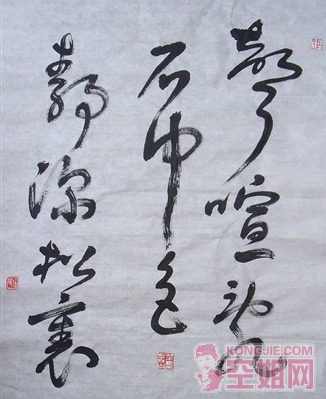 聲喧亂
石中色
靜深松裏
KONGJIE.COM
空姐网